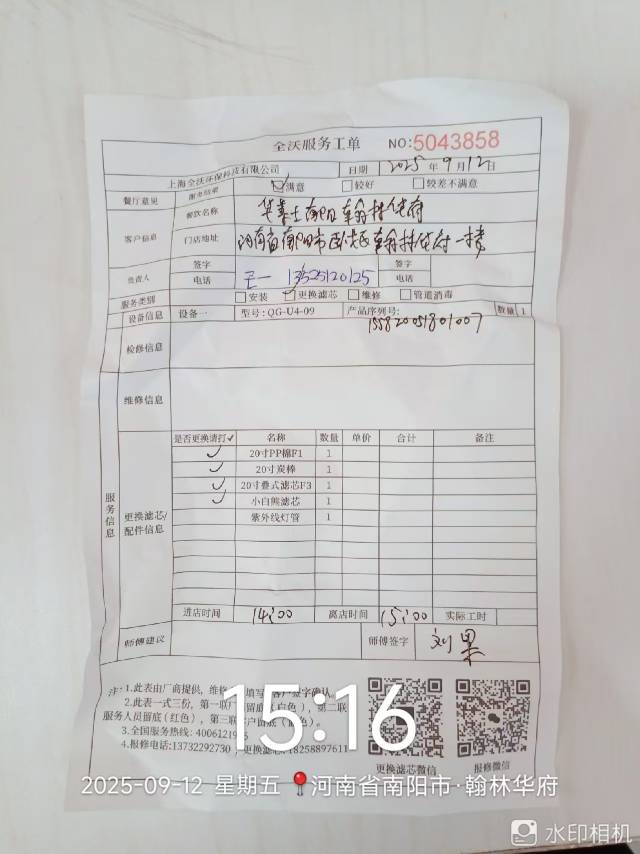 全沃服务工单 NO:5043858
上海全沃环保科技有限公司 日期 2025年9月12日
餐厅意见 服务结果 满意 较好 较差不满意
客户信息 餐饮名称 华莱士南阳翰林华府
门店地址 河南省南阳市卧龙区翰林华府一楼
负责人 签字 签字
电话 王一 13525120125 电话
服务类别 安装 更换滤芯 维修 管道消毒
设备信息 设备一 型号:QG-U4-09 产品序列号: 155820051801007 数量 1
检修信息
维修信息
服务信息
更换滤芯/配件信息
是否更换请打✓ 名称 数量 单价 合计 备注
✓ 20寸PP棉F1 1
✓ 20寸炭棒 1
✓ 20寸叠式滤芯F3 1
✓ 小白熊滤芯 1
紫外线灯管 1
进店时间 14:00 离店时间 15:00 实际工时
师傅建议 师傅签字 刘果
注:1.此表由厂商提供,维修 填写 签字确认。
2.此表一式三份,第一联 留底 色),第二联
服务人员留底(红色),第三联客户留底
3.全国服务热线:4006121
4.报修电话:13732292730 更换滤芯 18258897611
更换滤芯微信 报修微信
15:16
2025-09-12 星期五 河南省南阳市·翰林华府
水印相机